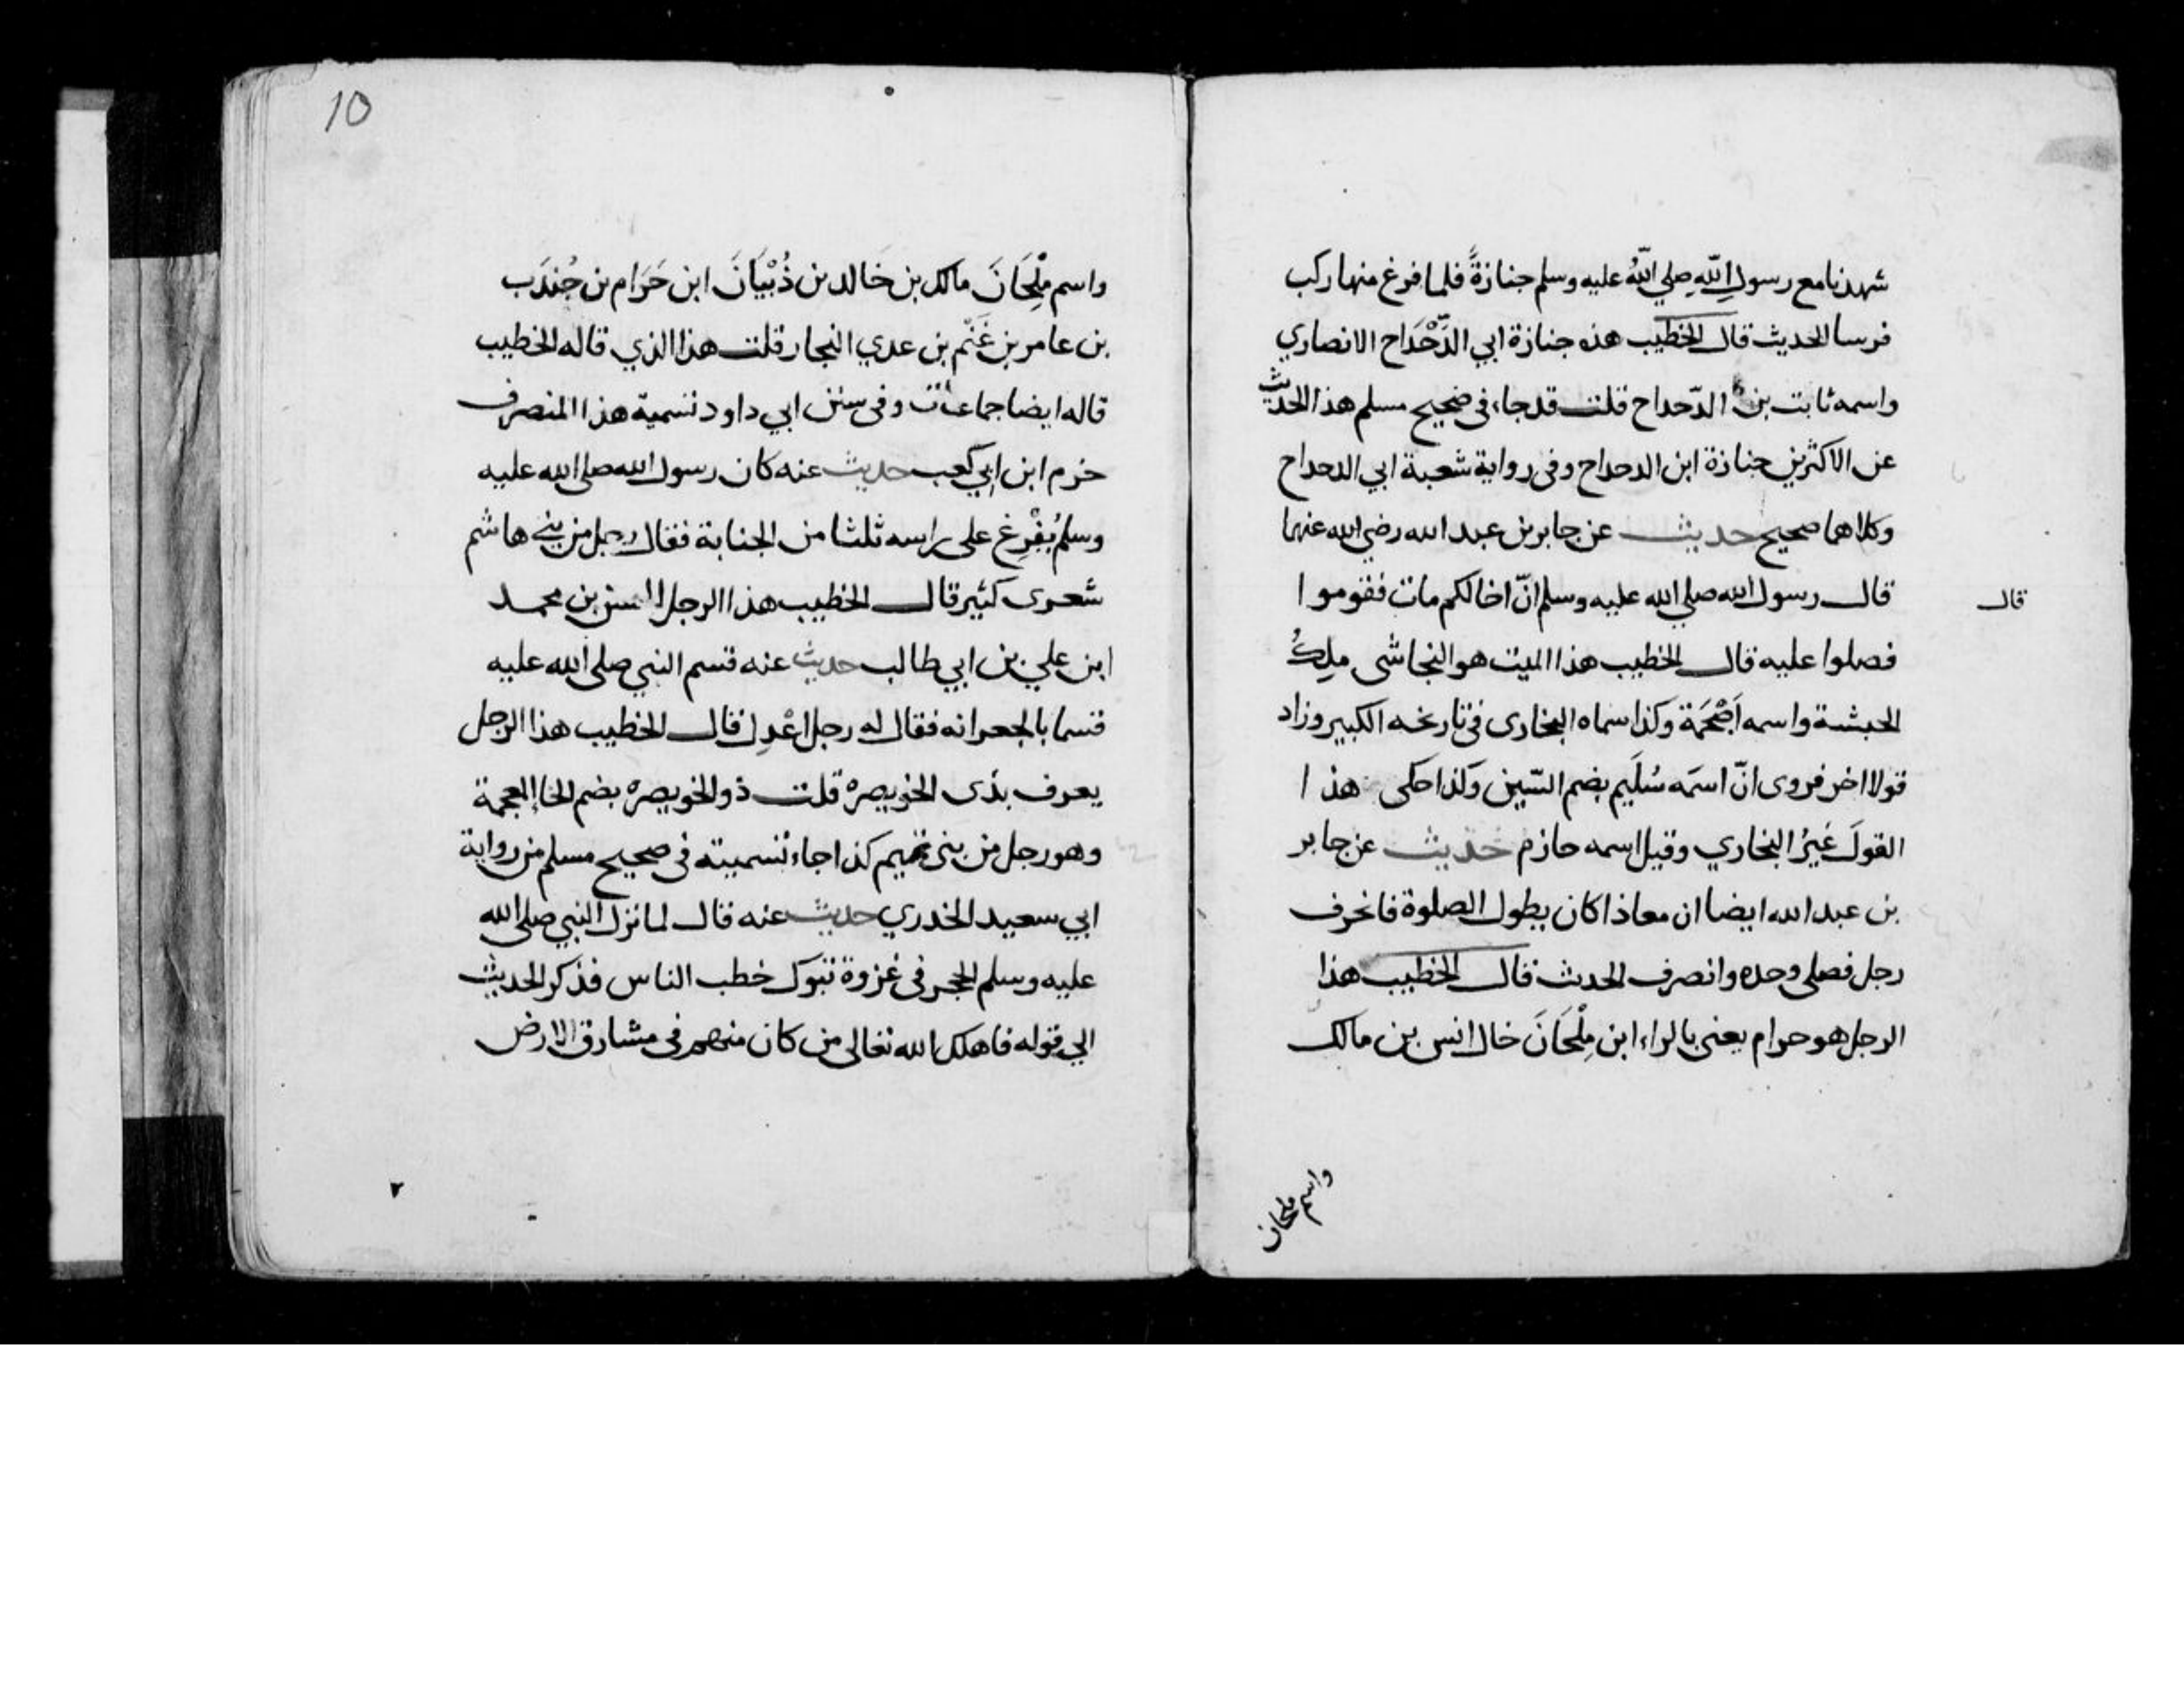 شهدنا مع رسولِ اللّهِ صلي اللّهُ عليه وسلم جنازةً فلما فرغ منها ركب
فرسا الحديث قال الخطيب هذه جنازة ابي الدَّحْدَاح الانصاري
واسمه ثابت بن الدّحداح قلت قد جاء في صحيح مسلم هذا الحديث
عن الاكثرين جنازة ابن الدحداح وفي رواية شعبة ابي الدحداح
وكلاهما صحيح حديث عن جابر بن عبد الله رضي الله عنهما
قال رسول الله صلي الله عليه وسلم انّ اخا لكم مات فقوموا
قال
فصلوا عليه قال الخطيب هذا الميت هو النجاشى ملِكُ
الحبشة واسمه اَصْحَمَة وكذا سماه البخارى في تاريخه الكبير وزاد
قولا اخر فروى انّ اسمَه سُلَيم بضم السّين وكذا حكى هذا
القولَ غيرُ البخاري وقيل اسمه حازم حديث عن جابر
بن عبد الله ايضا ان معاذا كان يطول الصلوة فانحرف
رجل فصلى وحده وانصرف الحدث قال الخطيب هذا
الرجل هو حرام يعنى بالراء ابن مِلْحَانَ خال انس بن مالك
واسم ملحان
10
واسم مِلْحَانَ مالك بن خَالد بن ذُبْيَانَ ابن حَرَام بن جُندَب
بن عامر بن غَنْم بن عدي النجار قلت هذا الذي قاله الخطيب
قاله ايضا جماعات وفى سنن ابي داود تسمية هذا المنصرف
حزم ابن ابي كعب حديث عنه كان رسول الله صلى الله عليه
وسلم يُفْرِغ على راسه ثلثا من الجنابة فقال رجل من بني هاشم
شعرى كثير قال الخطيب هذا الرجل الحسن بن محمد
ابن علي بن ابي طالب حديث عنه قسم النبي صلى الله عليه
قسما بالجعرانه فقال له رجل اعْدِل قال الخطيب هذا الرجل
يعرف بذى الخويصره قلت ذو الخويصره بضم الخاء المعجمة
وهو رجل من بنى تميم كذا جاء تسميته فى صحيح مسلم من رواية
ابي سعيد الخدري حديث عنه قال لما نزل النبي صلى الله
عليه وسلم الحجر فى غزوة تبوك خطب الناس فذكر الحديث
الي قوله فاهلك الله تعالى من كان منهم فى مشارق الارض
٢